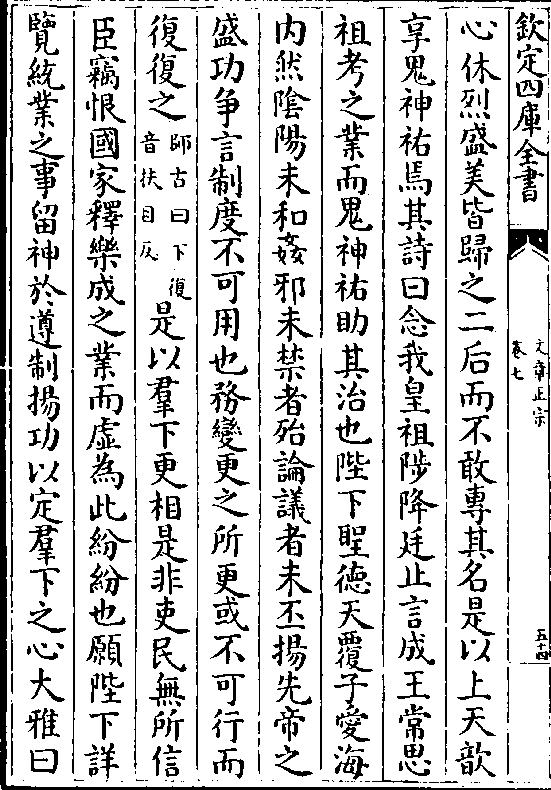 欽定四庫全書
文章正宗
卷七
五十四
心休烈盛美皆歸之二后而不敢專其名是以上天歆
享鬼神祐焉其詩曰念我皇祖陟降廷止言成王常思
祖考之業而鬼神祐助其治也陛下聖德天覆子愛海
内然陰陽未和姦邪未禁者殆論議者未丕揚先帝之
盛功爭言制度不可用也務變更之所更或不可行而
復復之師古曰下復
音扶目反
是以羣下更相是非吏民無所信
臣竊恨國家釋樂成之業而虚為此紛紛也願陛下詳
覽統業之事留神於遵制揚功以定羣下之心大雅曰